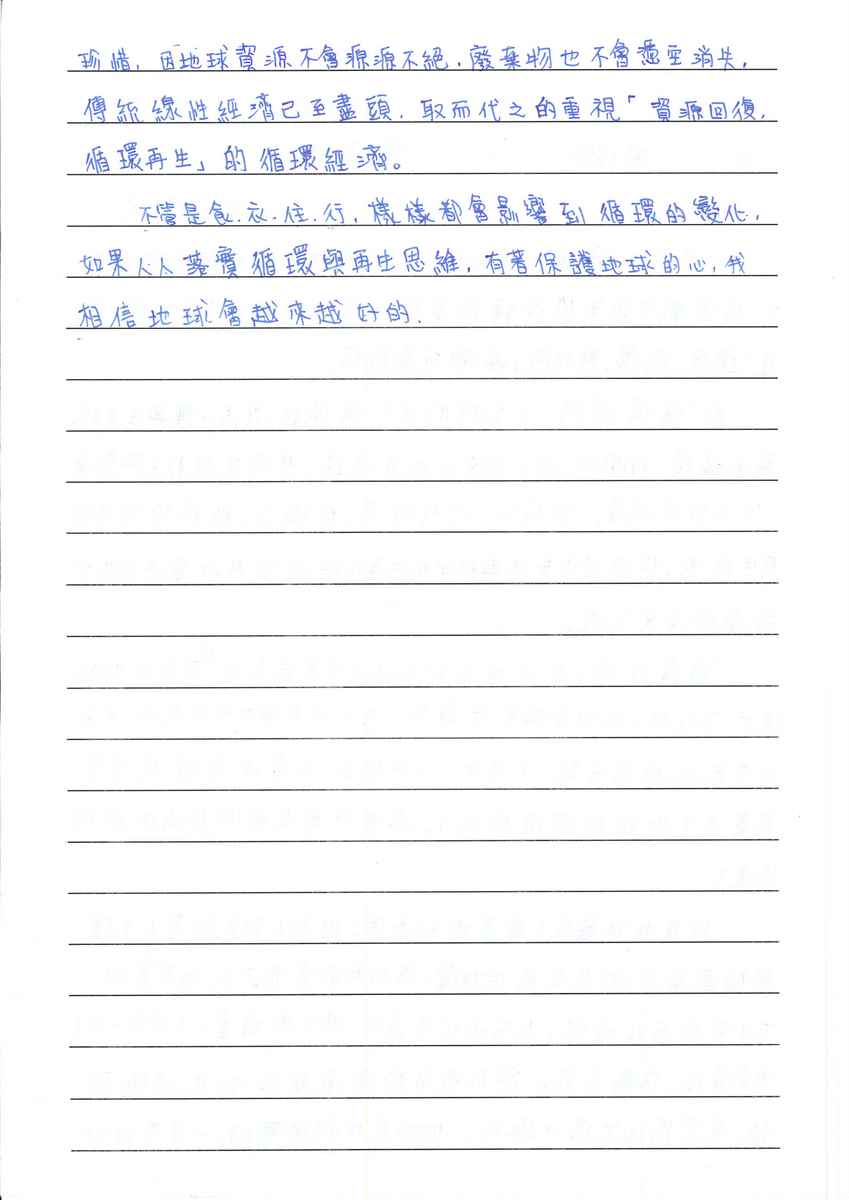 珍惜，因地球資源不會源源不絕，廢棄物也不會憑空消失，
傳統線性經濟已至盡頭．取而代之的重視「資源回復，
循環再生」的循環經濟。
不管是食．衣．住．行，樣樣都會影響到循環的變化，
如果人人落實循環與再生思維，有著保護地球的心，我
相信地球會越來越好的．